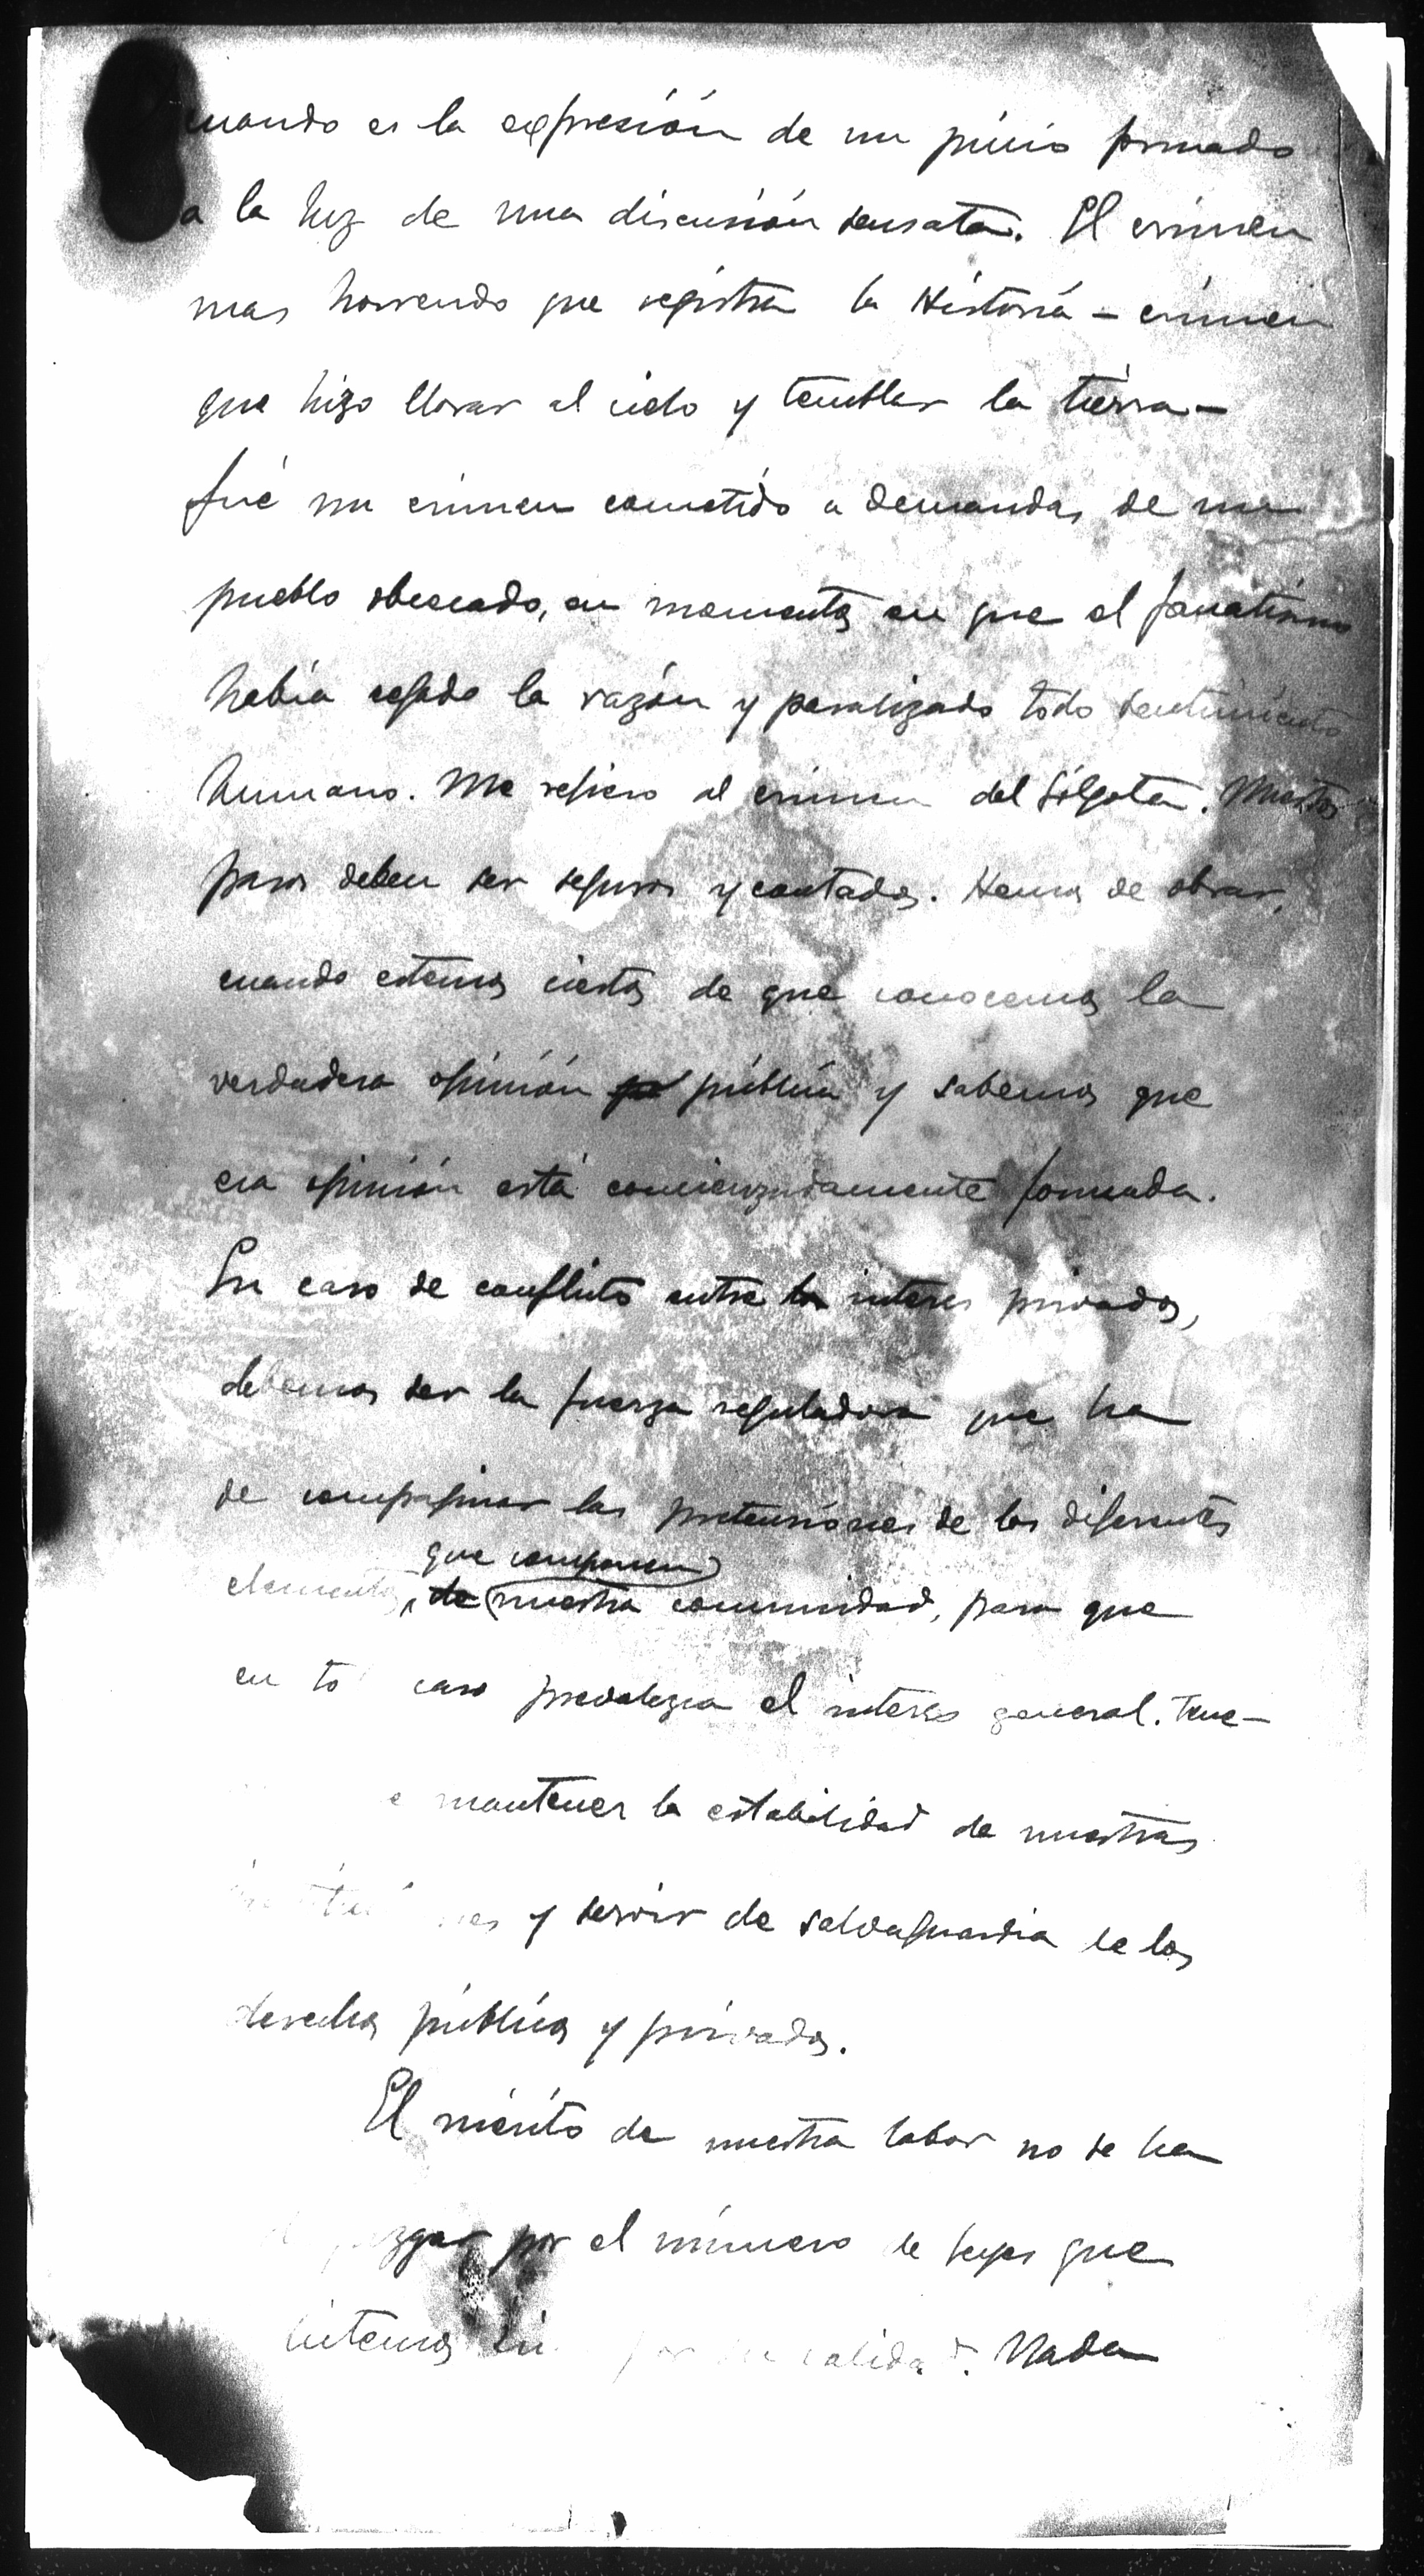 cuando es la expresión de un juicio formado
a la luz de una discusión sensata. El crimen
mas horrendo que registra la Historia – crimen
que hizo llorar al cielo y temblar la tierra –
fué un crimen cometido a demandas de un
pueblo obcecado, en momentos en que el fanatismo
había cegado la razón y paralizado todo sentimiento
humano. Me refiero al crimen del Gólgota. Nuestros
pasos deben ser seguros y contados. Hemos de obrar,
cuando estemos ciertos de que conocemos la
verdadera opinión pública y sabemos que
esa opinión está concienzudamente formada.
En caso de conflicto entre los interes privados,
debemos ser la fuerza reguladora que ha
de compaginar las pretensiones de los diferentes
que componen
elementos, de nuestra comunidad, para que
en to caso prevalezca el interés general. Tene-
e mantener la estabilidad de nuestras
y servir de salvaguardia de los
derechos públicos y privados.
El mérito de nuestra labor no se ha
juzgar por el número de leyes que
por su calidad. Nada